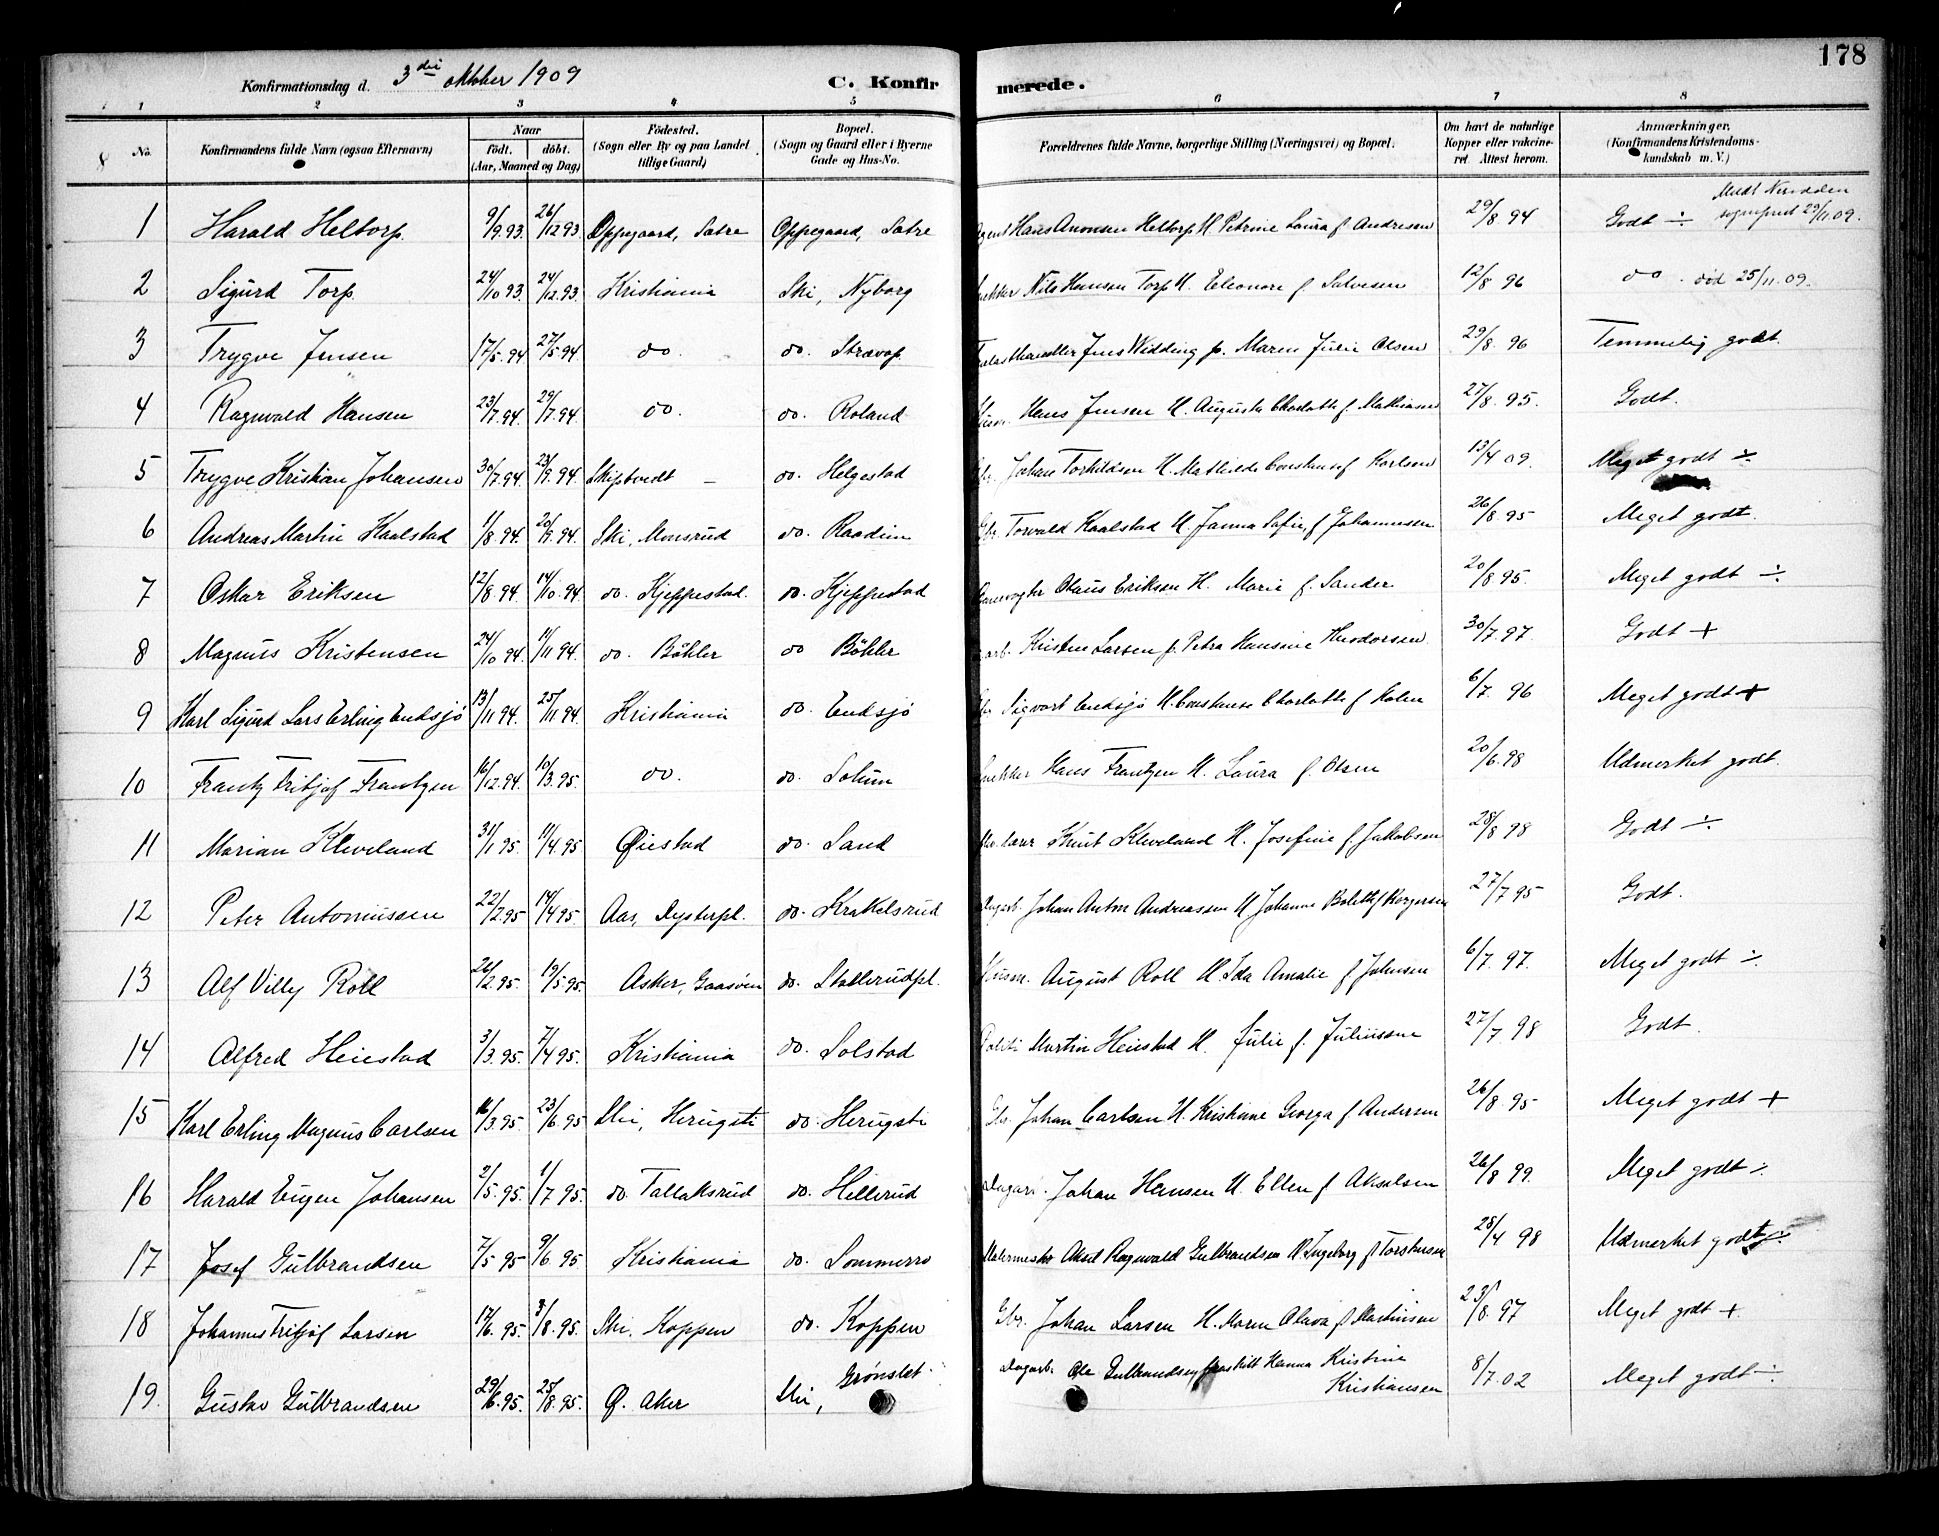 178
Konfirmationsdag d. 3die oktober 1909 C. Konfirmerede.
1 2 3 4 5 6 7 8
No. Konfirmandens fulde Navn (ogsaa Efternavn) Naar födt. döbt. (Aar, Maaned og Dag) Födested. (Sogn eller By og paa Landet tillige Gaard) Bopæl. (Sogn og Gaard eller i Byerne Gade og Hus-No. Forældrenes fulde Navne, borgerlige Stilling (Næringsvei) og Bopæl. Om havt de naturlige Kopper eller vaccineret. Attest herom. Anmærkninger. (Konfirmandens Kristendomskundskab m. V.)
1 Harald Heltorp. 9/9.93. 26/12 93 Oppegaard, Sætre Oppegaard, Sætre Agent Hans Amonsen Heltorp H. Petrine Laura f. Andresen 29/8 94 Godt ÷ 29/11.09.
2 Sigurd Torp. 24/10 93. 24/12.93. Kristiania Ski, Nyborg Nils Hansen Torp H. Eleonore f. Salvesen 12/8 96 do. död 25/11.09.
3 Trygve Jensen 17/5.94 27/5 94 do. do. Jens Widding p. Maren Julie Olsen 29/8. 96 Temmelig godt.
4 Ragnvald Hansen 23/7.94. 29/7.94. do. do. Roland Husm. Hans Jensen H. Augusta Charlotte f. Mathiasen 27/8. 95. Godt.
5 Trygve Kristian Johansen 30/7.94. 23/9. 94. Skiptvedt – do. Helgestad Gbr. Johan Torkildsen H. Mathilde Constanse f Karlsen 13/4 09. Meget godt ÷
6 Andreas Martin Kaalstad 1/8.94. 20/9.94. Ski, Monsrud do. Raadim Gbr. Torvald Kaalstad H. Janna Sofie, f Johannesen 26/8.95 Meget godt.
7 Oskar Eriksen 12/8.94. 14/10.94 do. Kjeppestad. do. Kjeppestad Banevogter Olaus Eriksen H. Marie f. Sander 20/8 95. Meget godt ÷
8 Magnus Kristensen 24/10 94. 11/11 94. do. Böhler do Böhler Kristen Larsen f. Petra Hansine Theodorsen 30/7.97. Godt +
9 Karl Sigurd Lars Erling Endsjø 13/11 94. 25/11.94. Kristiania do. Endsjø Gbr Sigvart Endsjø H. Constanse Charlotte f Holm 6/7. 96 Meget godt +
10 Frantz Fritjof Frantzen 16/12.94. 10/3.95. do. do. Solum Snekker Hans Frantzen H. Laura f. Olsen 20/6.98 Udmerket godt.
11 Marian Kleveland 31/1 95. 11/4.95 Øiestad do. Sand Knut Kleveland H. Josefine f. Jakobsen 28/8 98 Godt ÷
12 Peter Antoniussen 22/2.95 14/4 95. Aas, Dysterpl. do. Krakelsrud Dagarb. Johan Anton Andreassen H Johanne Bolette f Borgersen 27/7 95 Godt.
13 Alf Villy Roll 26/2.95. 19/5.95. Asker, Gaasøen do. Stollerudpl. Husm. August Roll H. Ida Amalie f Johnsen 6/7. 97. Meget godt ÷
14 Alfred Heiestad 3/3.95. 7/4 95. Kristiania do. Solstad Politi Martin Heiestad H. Julie f. Juliussen 27/7. 98 Godt.
15 Karl Erling Magnus Carlsen 16/3.95. 23/6.95 Ski, Herugsti do. Herugsti Gbr. Johan Carlsen H. Kristiane Georga f Andersen 26/8.95 Meget godt +
16 Harald Eugen Johansen 2/5.95. 1/7 95. do. Tallaksrud do. Hillerud Dagarb. Johan Hansen H. Ellen f Akselsen 26/8 99. Meget godt ÷
17 Josef Gulbrandsen 7/5 95 9/6 95. Kristiania do. Sommerro Malermester Aksel Ragnvald Gulbrandsen H Ingeborg f Torstensen 28/4 98 Udmerket godt ÷
18 Johannes Fritjof Larsen 17/6. 95. 3/8.95. Ski, Koppen do. Koppen Gbr. Johan Larsen H. Maren Olava f Martinsen 23/8. 97 Meget godt +
19. Gustav Gulbrandsen 29/6.95. 25/8.95. Ø. Aker Ski, Grønslet Dagarb. Ole Gulbrandsen fraskilt Hanna Kristine Kristiansen 8/7.02 Meget godt ÷